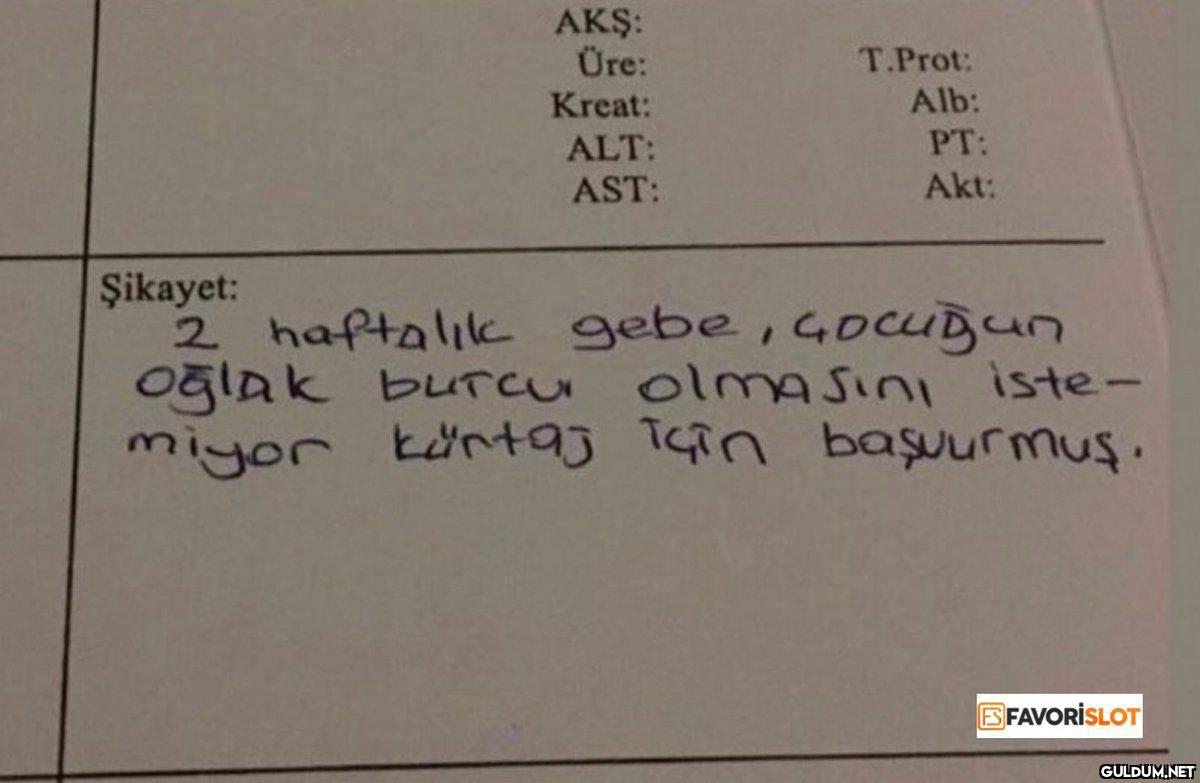 AKŞ:
Üre: T.Prot:
Kreat: Alb:
ALT: PT:
AST: Akt:
Şikayet:
2 haftalık gebe, çocuğun
oğlak burcu olmasını iste-
miyor kürtaj için başvurmuş.
FS FAVORİSLOT
GULDUM.NET